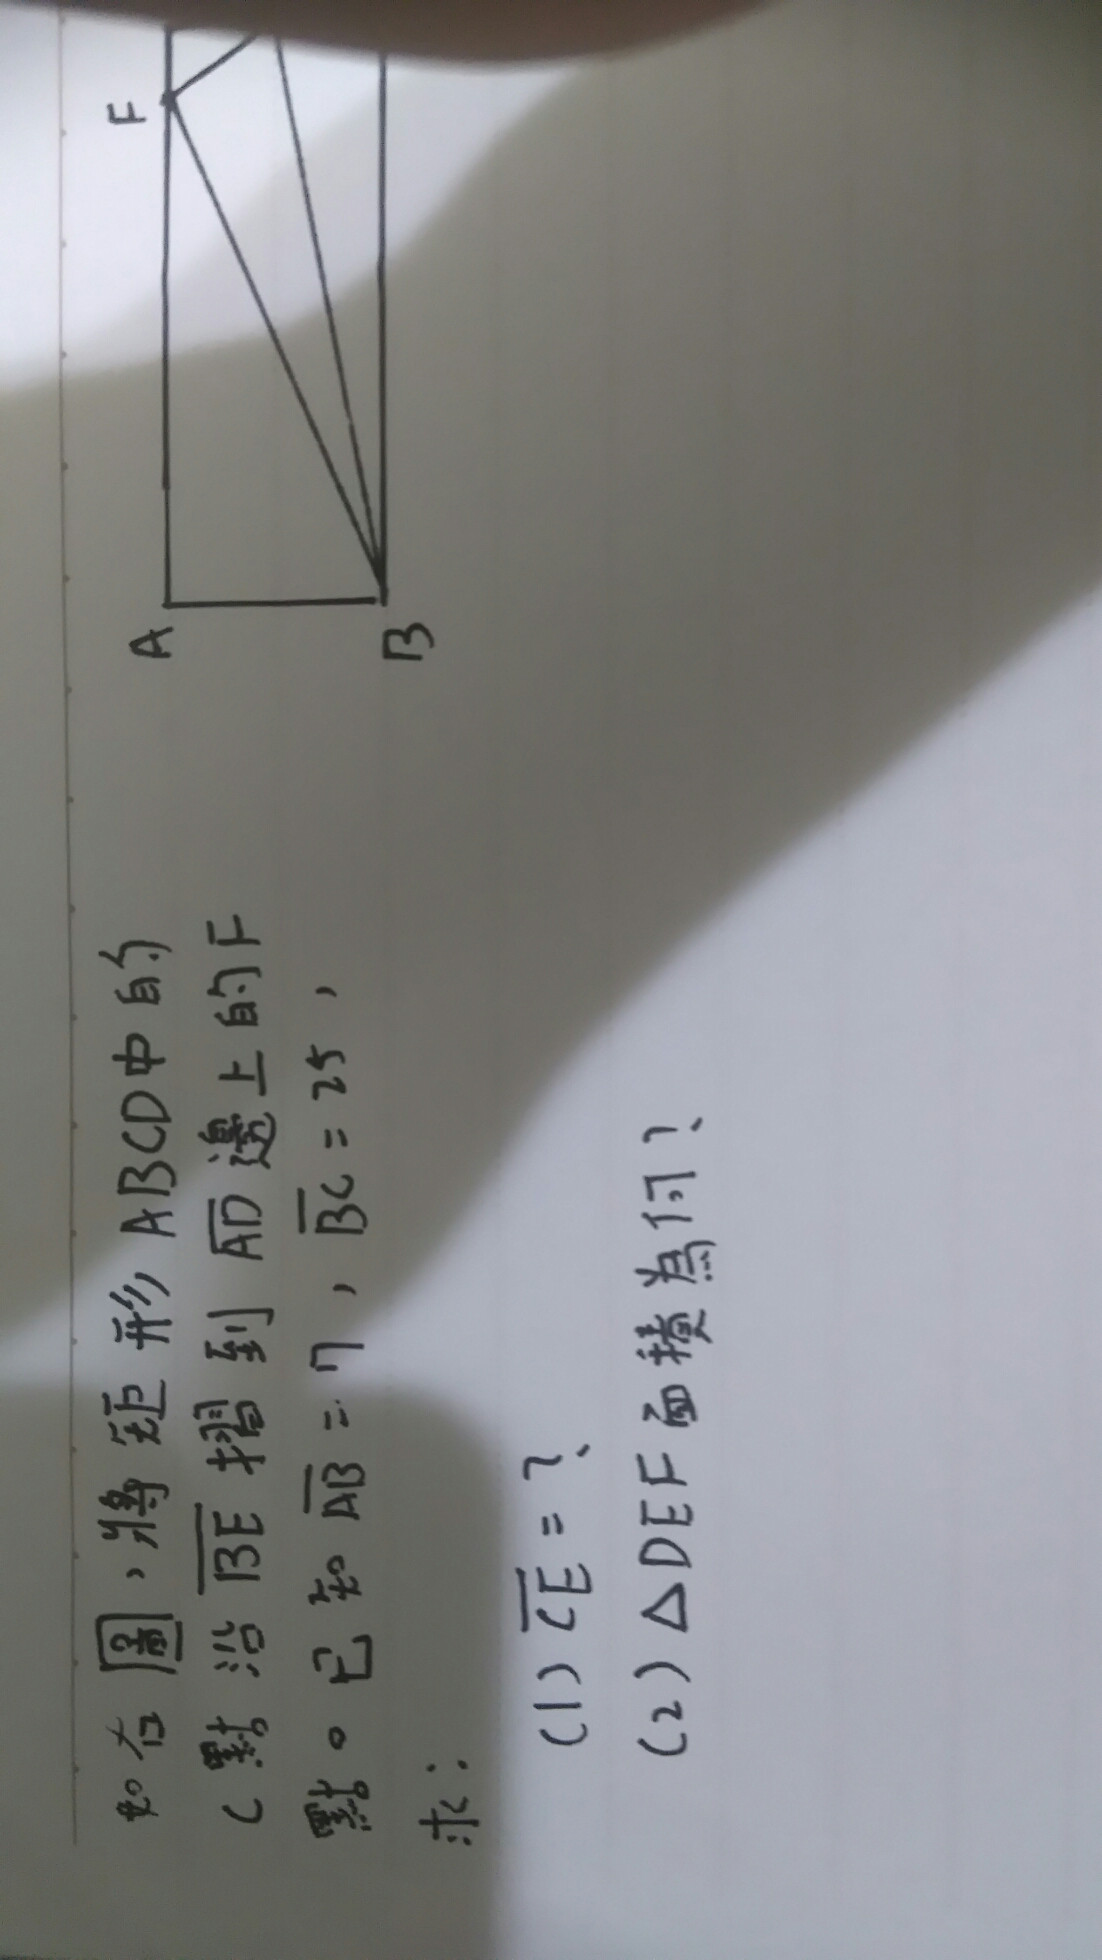 如右圖，將矩形ABCD中的
C點沿BE摺到AD邊上的F
點。已知AB=7，BC=25，
求：
(1) CE=？
(2) △DEF面積為何？
A
F
B